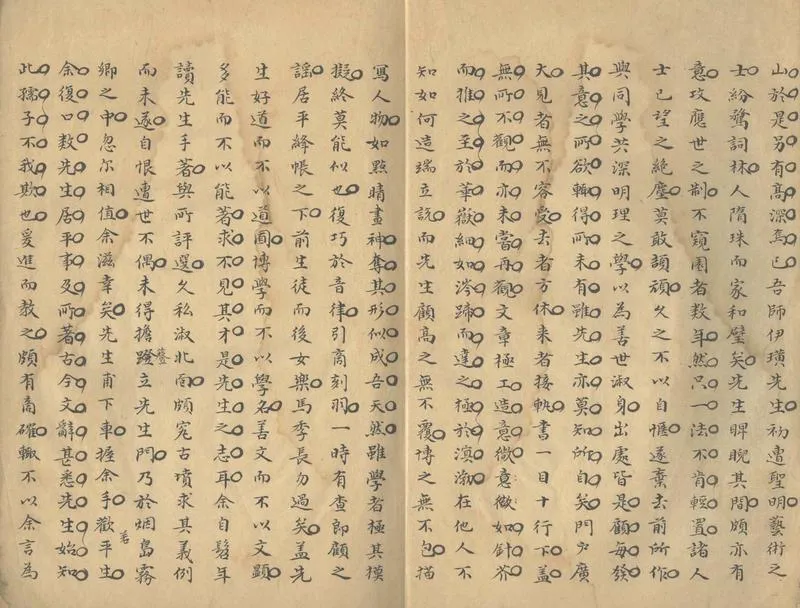 山於是另有高深焉已吾師伊璜先生初遭聖明藝術之
士紛騖詞林人隋珠而家和璧矣先生睥睨其間頗亦有
意攻應世之制不窺園者数年然只一法不肯輕置諸人
士已望之絶塵莫敢頡頏久之不以自愜遂棄去前所作
與同學共深明理之學以為善世淑身出處皆是顧每發
其意之所欲輙得所未有雖先生亦莫知所自矣門户廣
大見者無不容愛去者方休来者接軌書一目十行下盖
無所不觀而亦未嘗再觀文章極工造意微意微如針芥
而推之至於華嶽細如涔蹄而達之極於溟渤在他人不
知如何造端立説而先生顧高之無不覆博之無不包描
寫人物如點睛畫神奪其形似成吾天然雖學者極其摸
擬終莫能似也復巧於音律引商刻羽一時有查郎顧之
謡居平絳帳之下前生徒而後女樂馬季長勿過矣盖先
生好道而不以道圓博學而不以學名善文而不以文顕
多能而不以能著求不見其才是先生之志耳余自髫年
讀先生手著與所評選久私淑北面頗寃古墳求其義例
而未遂自恨遭世不偶未得擔簦立先生門乃於烟島霧
卿之中忽尔相值余滋幸矣先生甫下車握余手歡若平生
余復口数先生居平事及所著古今文辭甚悉先生始知
此孺子不我欺也爰進而教之頗有商確輙不以余言為